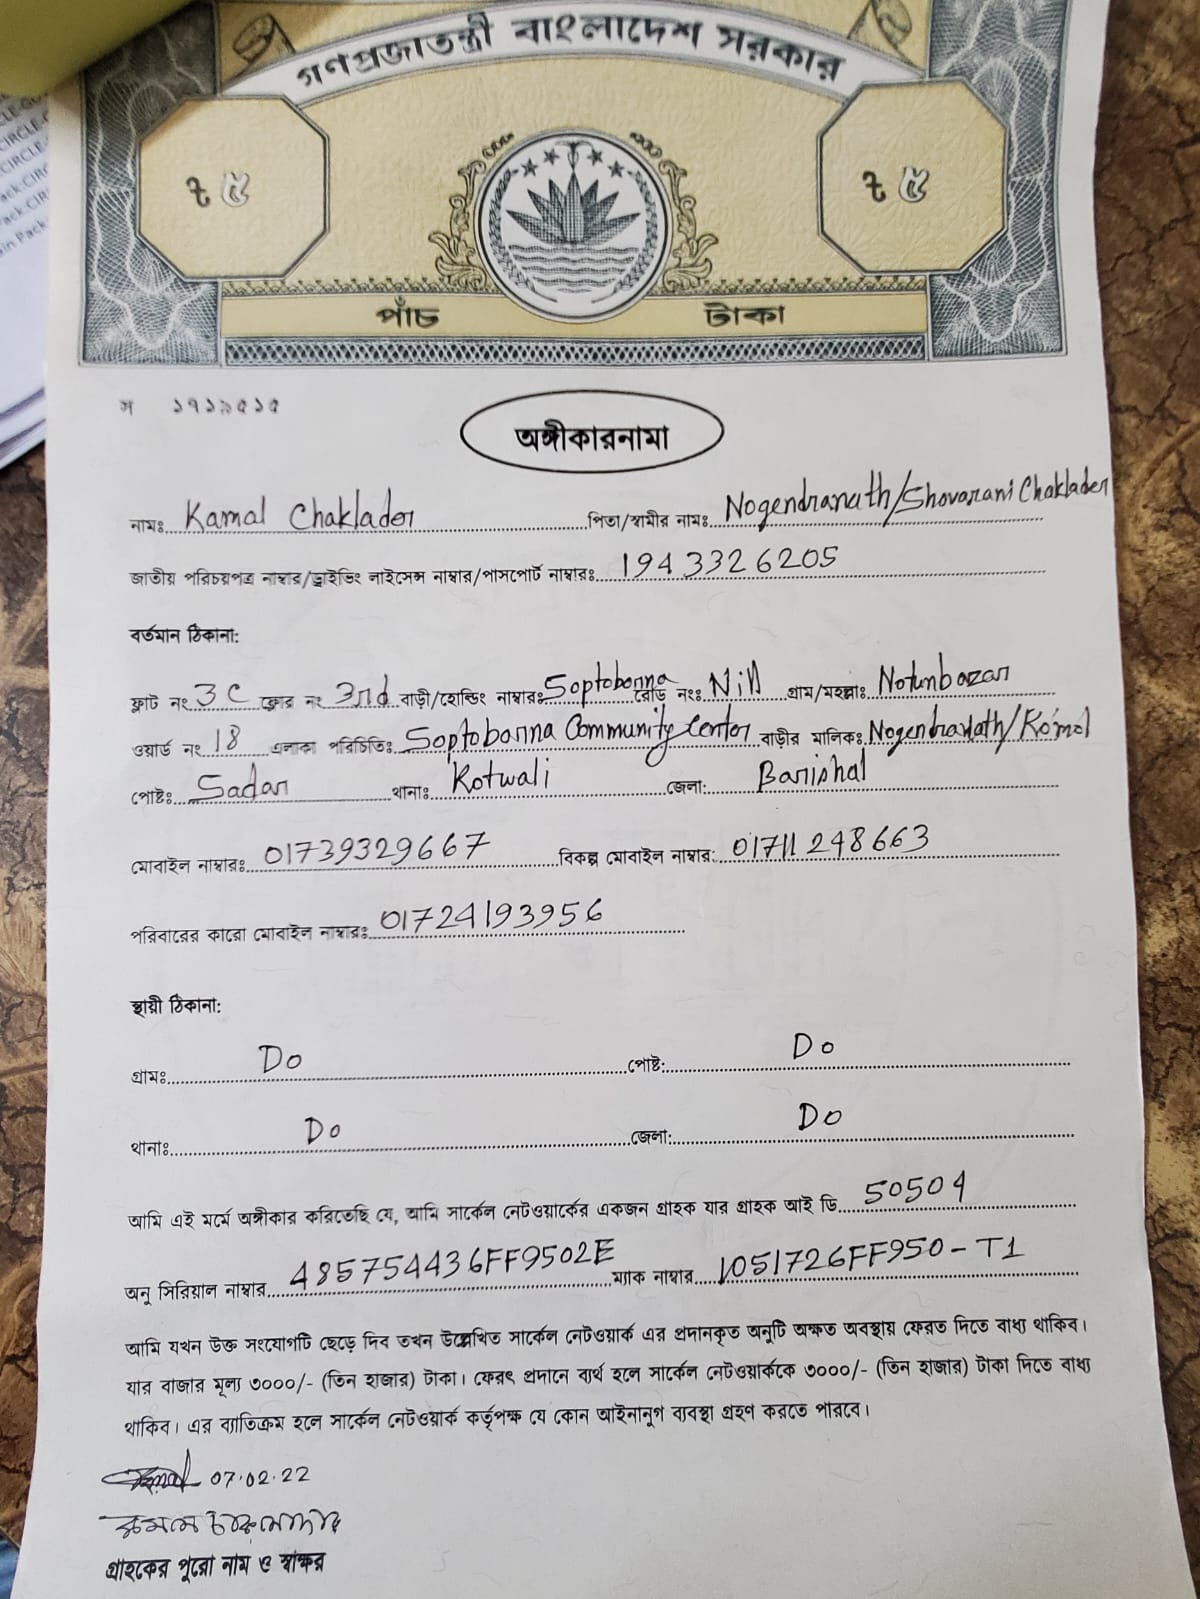 গণপ্রজাতন্ত্রী বাংলাদেশ সরকার
৳ ৫ ৳ ৫
পাঁচ টাকা
স ১৭১৯৫১৫
অঙ্গীকারনামা
নামঃ Kamal Chaklader পিতা/স্বামীর নামঃ Nogendranath/Shovarani Chaklader
জাতীয় পরিচয়পত্র নাম্বার/ড্রাইভিং লাইসেন্স নাম্বার/পাসপোর্ট নাম্বারঃ 1943326205
বর্তমান ঠিকানা:
ফ্লাট নং 3C ফ্লোর নং 3rd বাড়ী/হোল্ডিং নাম্বারঃ Soptobonna রোড নংঃ Nill গ্রাম/মহল্লাঃ Notunbazar
ওয়ার্ড নং 18 এলাকা পরিচিতিঃ Soptobonna Community Center বাড়ীর মালিকঃ Nogendranath/Komol
পোষ্টঃ Sadar থানাঃ Kotwali জেলা: Barishal
মোবাইল নাম্বারঃ 01739329667 বিকল্প মোবাইল নাম্বার: 01711248663
পরিবারের কারো মোবাইল নাম্বারঃ 01724193956
স্থায়ী ঠিকানা:
গ্রামঃ Do পোষ্ট: Do
থানাঃ Do জেলা: Do
আমি এই মর্মে অঙ্গীকার করিতেছি যে, আমি সার্কেল নেটওয়ার্কের একজন গ্রাহক যার গ্রাহক আই ডি 50504
অনু সিরিয়াল নাম্বার 485754436FF9502E ম্যাক নাম্বার 1051726FF950-T1
আমি যখন উক্ত সংযোগটি ছেড়ে দিব তখন উল্লেখিত সার্কেল নেটওয়ার্ক এর প্রদানকৃত অনুটি অক্ষত অবস্থায় ফেরত দিতে বাধ্য থাকিব।
যার বাজার মূল্য ৩০০০/- (তিন হাজার) টাকা। ফেরৎ প্রদানে ব্যর্থ হলে সার্কেল নেটওয়ার্ককে ৩০০০/- (তিন হাজার) টাকা দিতে বাধ্য
থাকিব। এর ব্যতিক্রম হলে সার্কেল নেটওয়ার্ক কর্তৃপক্ষ যে কোন আইনানুগ ব্যবস্থা গ্রহণ করতে পারবে।
07.02.22
কমল চাকলাদার
গ্রাহকের পুরো নাম ও স্বাক্ষর